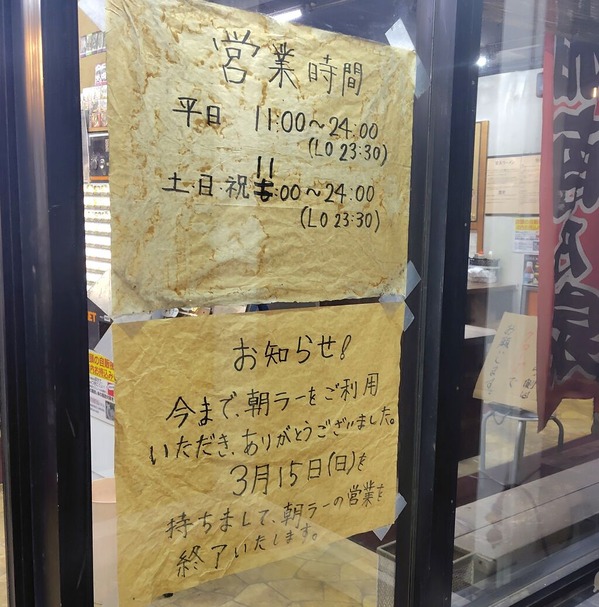 営業時間
平日 11:00～24:00
(LO 23:30)
土・日・祝 11:00～24:00
(LO 23:30)
お知らせ!
今まで、朝ラーをご利用
いただき、ありがとうございました。
3月15日(日)を
持ちまして、朝ラーの営業を
終了いたします。